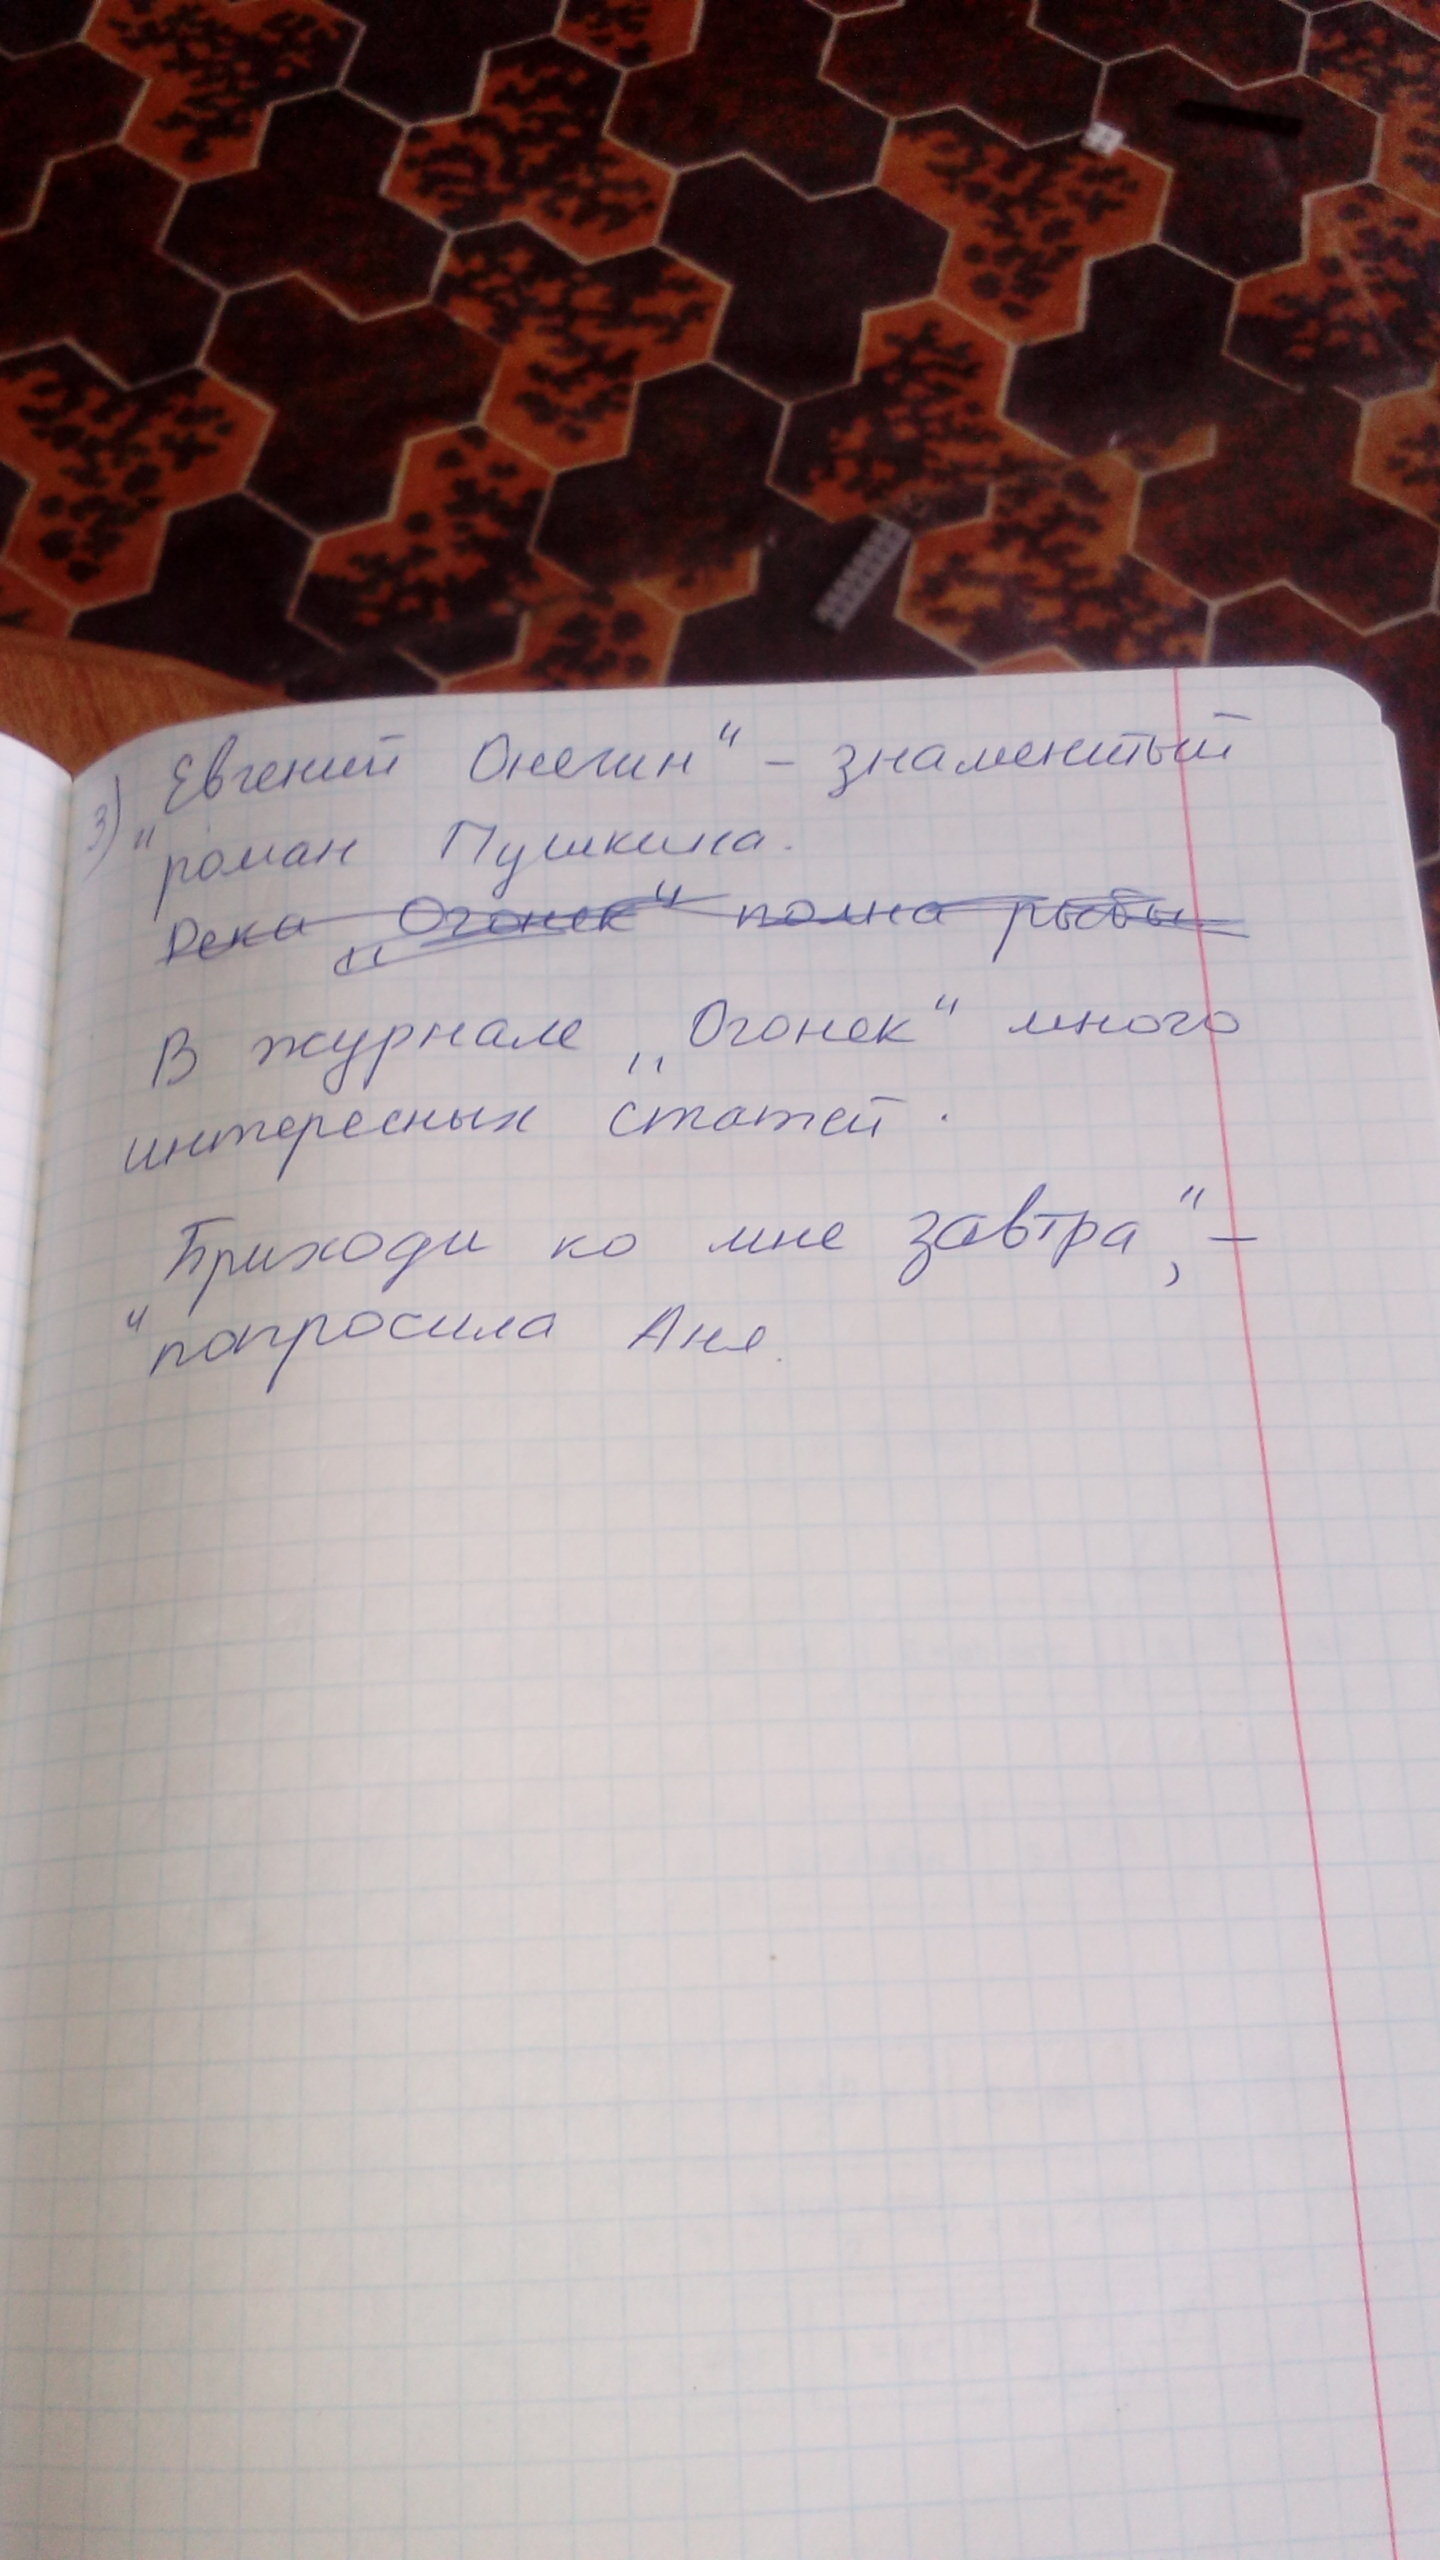 3) „Евгений Онегин“ – знаменитый
роман Пушкина.
Река „Огонек“ полна рыбы
В журнале „Огонек“ много
интересных статей.
„Приходи ко мне завтра“, –
попросила Аня.